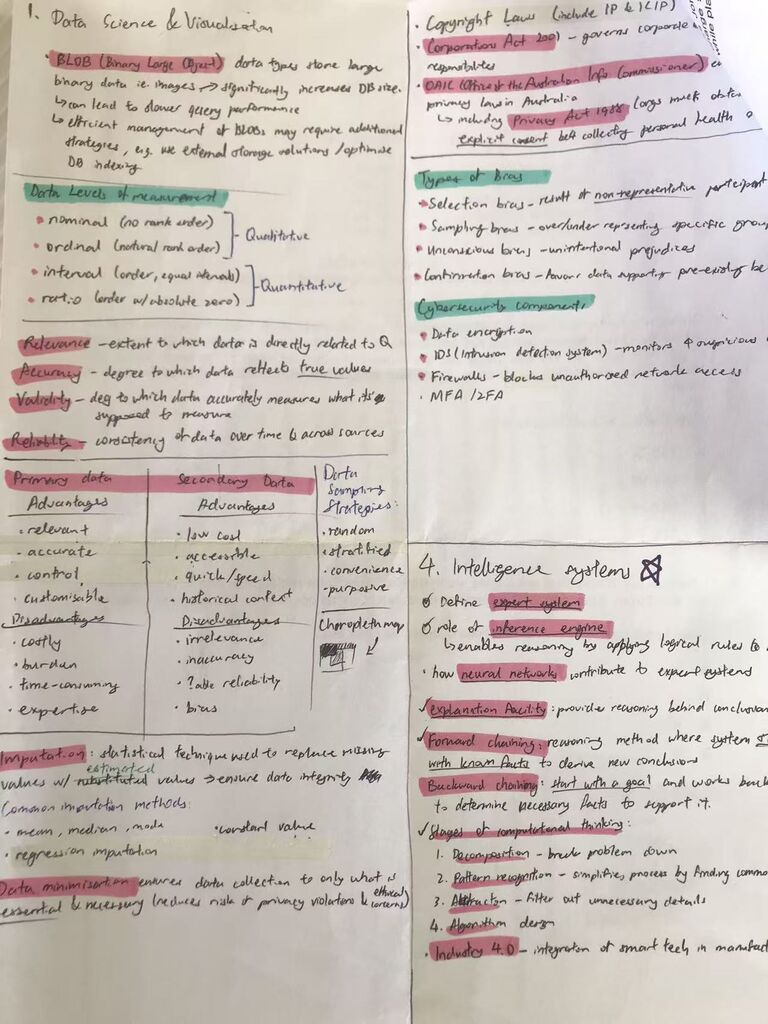 1. Data Science & Visualisation
• BLOB (Binary Large Object) data types store large
binary data ie. images → significantly increases DB size.
↳ can lead to slower query performance
↳ efficient management of BLOBs may require additional
strategies, e.g. use external storage solutions/optimise
DB indexing
Data Levels of measurement
• nominal (no rank order)
• ordinal (natural rank order)
- Qualitative
• interval (order, equal intervals)
• ratio (order w/ absolute zero)
- Quantitative
Relevance - extent to which data is directly related to Q
Accuracy - degree to which data reflects true values
Validity - deg to which data accurately measures what it's
supposed to measure
Reliability - consistency of data over time & across sources
Primary data
Advantages
• relevant
• accurate
• control
• customisible
Disadvantages
• costly
• burden
• time-consuming
• expertise
Secondary Data
Advantages
• low cost
• accessible
• quick/speed
• historical context
Disadvantages
• irrelevance
• inaccuracy
• ?able reliability
• bias
Data
Sampling
Strategies:
• random
• stratified
• convenience
• purposive
Choropleth map
Imputation: statistical technique used to replace missing
values w/ estimated values → ensure data integrity
Common imputation methods:
• mean, median, mode • constant value
• regression imputation
Data minimisation ensures data collection to only what is
essential & necessary (reduces risk of privacy violations & ethical concerns)
• Copyright Laws (include IP & ICIP)
• Corporations Act 2001 - governs corporate
responsibilites
• OAIC (Office of the Australian Info Commissioner)
privacy laws in Australia
↳ including Privacy Act 1988 (orgs must obtain
explicit consent bef collecting personal health
Types of Bias
• Selection bias - result of non-representative participant
• Sampling bias - over/under representing specific
• Unconscious bias - unintentional prejudices
• Confirmation bias - favour data supporting pre-existing
Cybersecurity components
• Data encryption
• IDS (Intrusion detection system) - monitors 4 suspicious
• Firewalls - blocks unauthorised network access
• MFA /2FA
4. Intelligence systems
Define expert system
role of inference engine
↳ enables reasoning by applying logical rules to
• how neural networks contribute to expert systems
✓ explanation facility: provides reasoning behind
✓ Forward chaining: reasoning method where system
with known facts to derive new conclusions
Backward chaining: start with a goal and works
to determine necessary facts to support it.
✓ Stages of computational thinking:
1. Decomposition - break problem down
2. Pattern recognition - simplifies process by finding
3. Abstraction - filter out unnecessary details
4. Algorithm design
• Industry 4.0 - integration of smart tech in